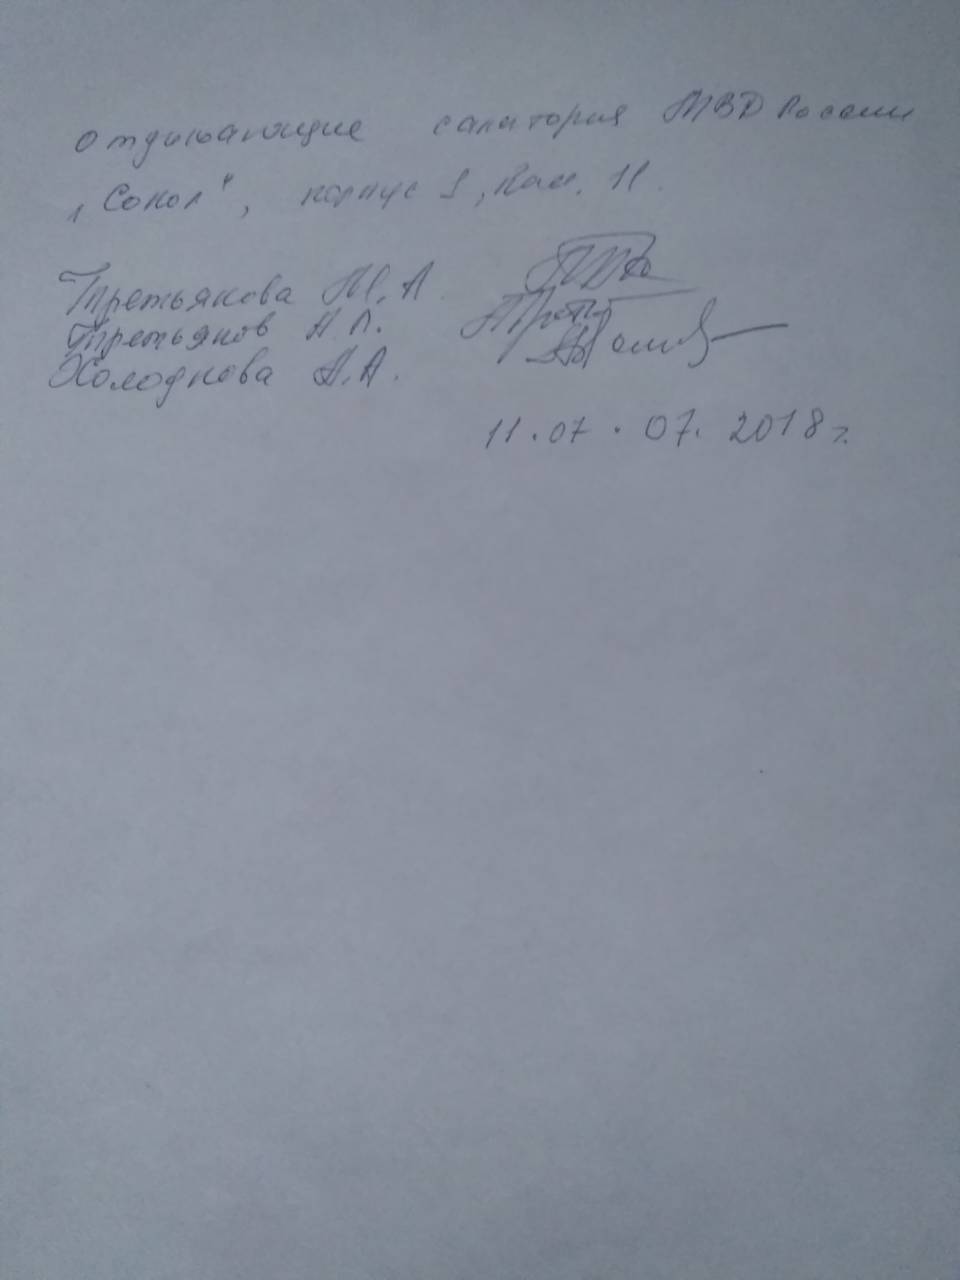 Отдыхающие санатория МВД России
„Сокол", корпус 1, ком. 11.
Третьякова М. А.
Третьяков А. П.
Холоднова А. А.
11.07.07.2018г.